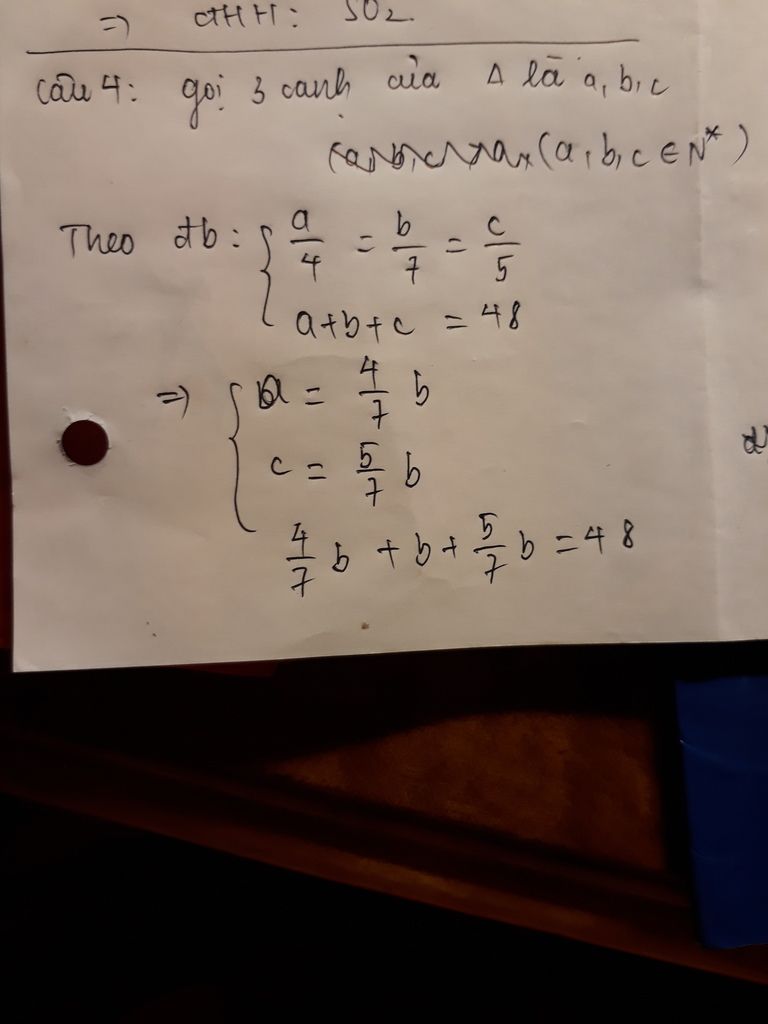 => CTHH: SO2.
Câu 4: gọi 3 cạnh của Δ là a, b, c
(a, b, c ∈ N*)
Theo đb: { a/4 = b/7 = c/5
a+b+c = 48
=> { a = 4/7 b
c = 5/7 b
4/7 b + b + 5/7 b = 48